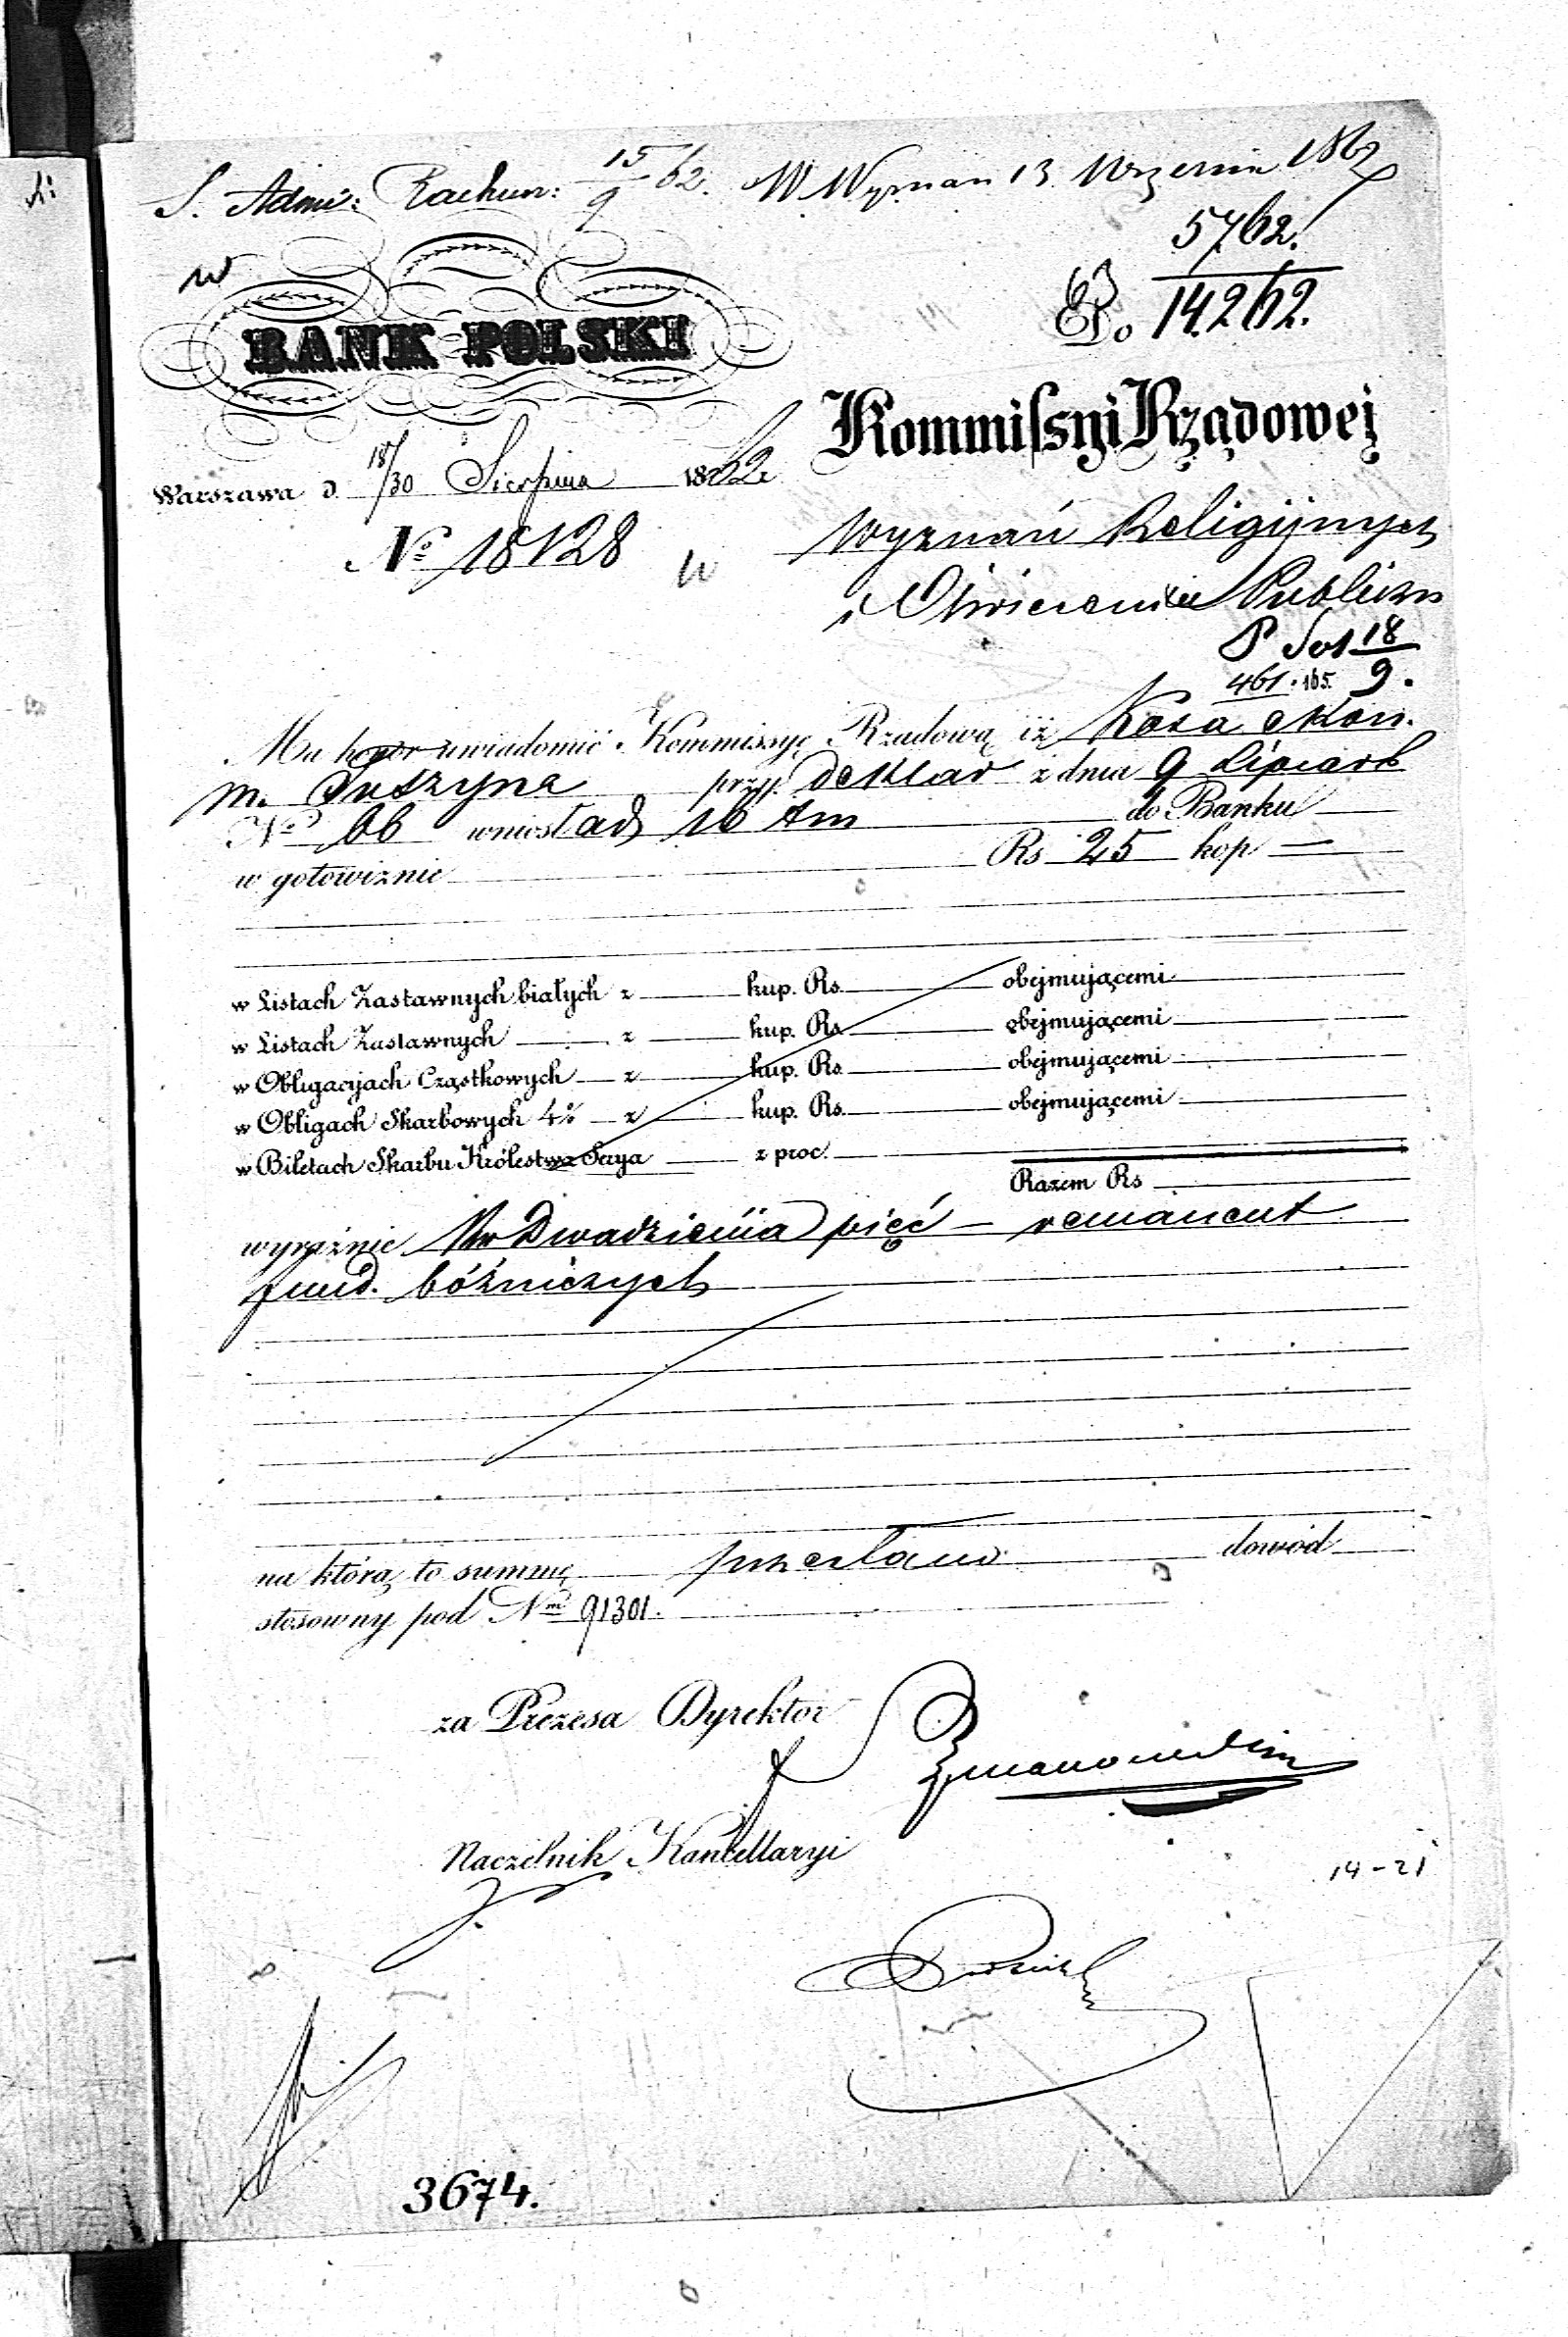 S. Admi: Rachun: 15/9 62. W Wyznań 13 Września 1862
5762.
14262.
w
BANK POLSKI
Kommissyi Rządowej
Warszawa d. 18/30 Sierpnia 1862
No 18128
w
Wyznań Religijnych
i Oświecenia Publiczn
18/9.
461. 165.
Ma honor uwiadomić Kommissyę Rządową iż Kasa ekon.
m. Tuszyna przy deklar z dnia 9 Lipca rb
No 66 wniosła d 16 tm do Banku
w gotowiznie Rs 25 kop —
w Listach Zastawnych białych z kup. Rs. obejmującemi
w Listach Zastawnych z kup. Rs. obejmującemi
w Obligacyjach Cząstkowych z kup. Rs. obejmującemi
w Obligach Skarbowych 4% z kup. Rs. obejmującemi
w Biletach Skarbu Królestwa Serya z proc.
Razem Rs
wyraźnie Rsr Dwadzieścia pięć — remanent
fund. bóźniczych
na którą to summę przesłano dowód
stosowny pod Nm 91301.
za Prezesa Dyrektor
Naczelnik Kancellaryi
14-21
3674.